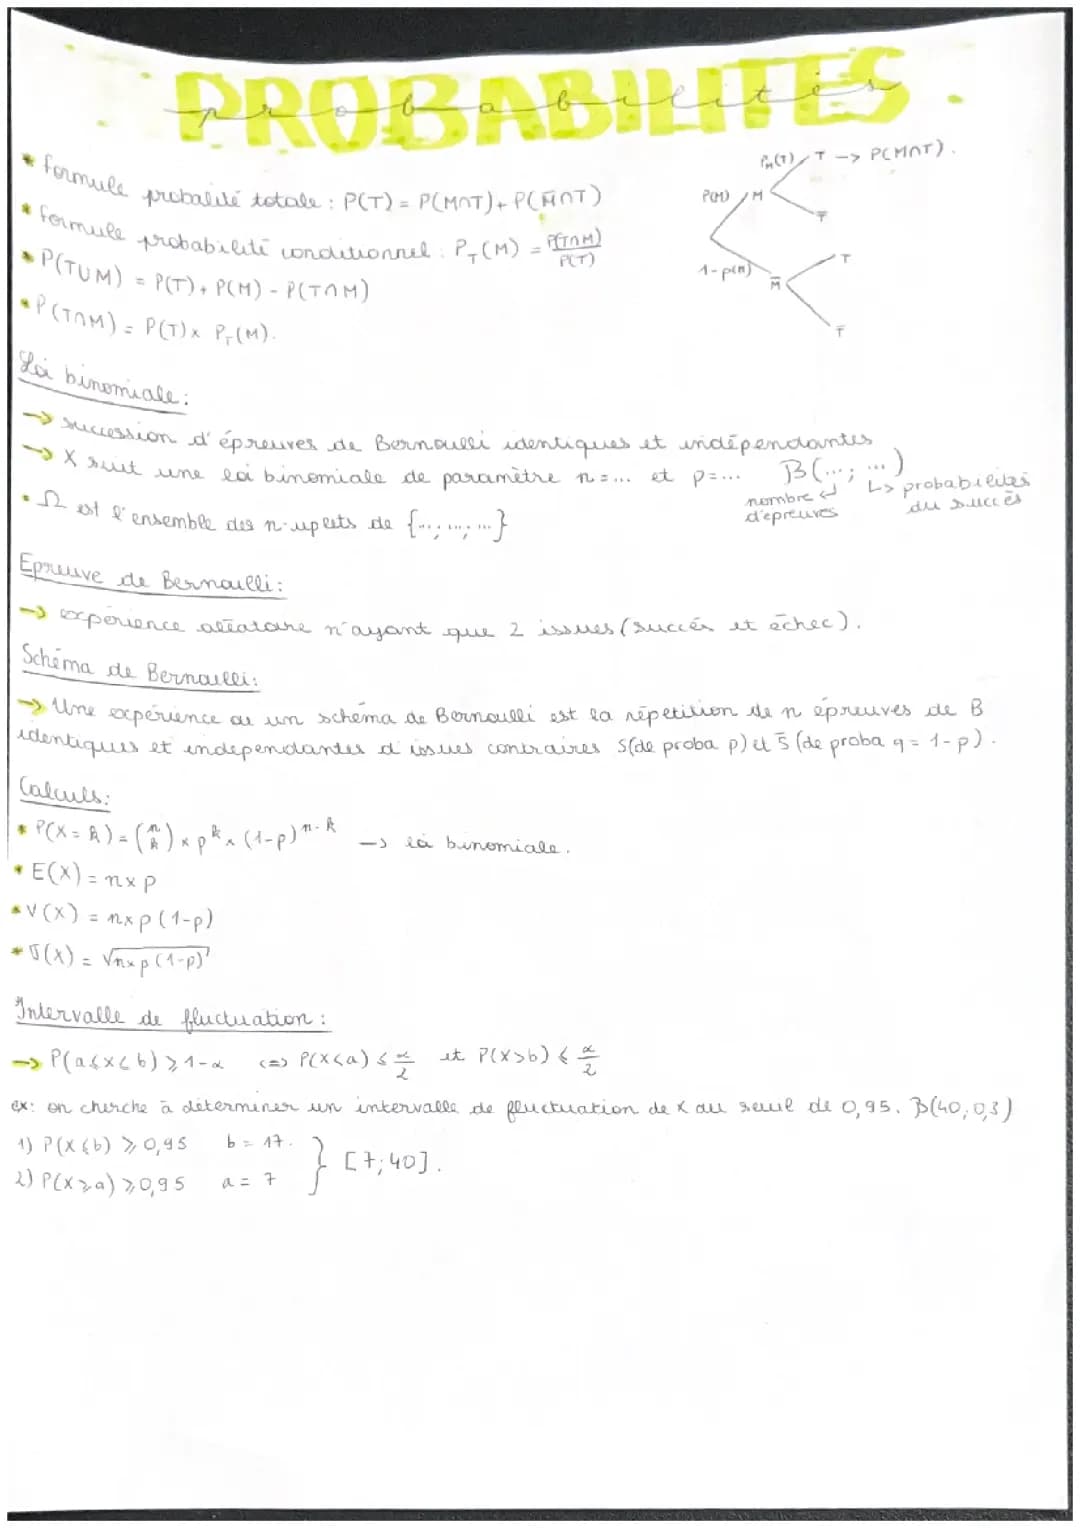 PROBABILITES
probabilités
* formule probalité totale : P(T) = P(M∩T) + P(M̄∩T)
* formule probabilité conditionnel : P_T(M) = P(T∩M)/P(T)
• P(T∪M) = P(T) + P(M) - P(T∩M)
• P(T∩M) = P(T) × P_T(M).
P(M) M P_M(T) T -> P(M∩T).
T̄
1-p(m) M̄ T
T̄
Loi binomiale :
-> succession d'épreuves de Bernoulli identiques et indépendantes
-> X suit une loi binomiale de paramètre n=... et p=... B(...; ...)
nombre d'épreuves
↳ probabilités du succès
• Ω est l'ensemble des n-uplets de {...; ...; ...}
Epreuve de Bernoulli :
-> expérience aléatoire n'ayant que 2 issues (succès et échec).
Schéma de Bernoulli :
-> Une expérience ou un schéma de Bernoulli est la répetition de n épreuves de B
identiques et indépendantes d'issues contraires S(de proba p) et S̄ (de proba q = 1-p).
Calculs :
* P(X = k) = (n k) × p^k × (1-p)^(n-k) -> loi binomiale.
* E(X) = n×p
* V(X) = n×p (1-p)
* σ(X) = √(n×p (1-p))
Intervalle de fluctuation :
-> P(a⩽x⩽b) ⩾ 1-α <=> P(X<a) ⩽ α/2 et P(X>b) ⩽ α/2
ex: on cherche à déterminer un intervalle de fluctuation de X au seuil de 0,95. B(40; 0,3)
1) P(X⩽b) ⩾ 0,95 b = 17.
2) P(X⩾a) ⩾ 0,95 a = 7
} [7; 40].